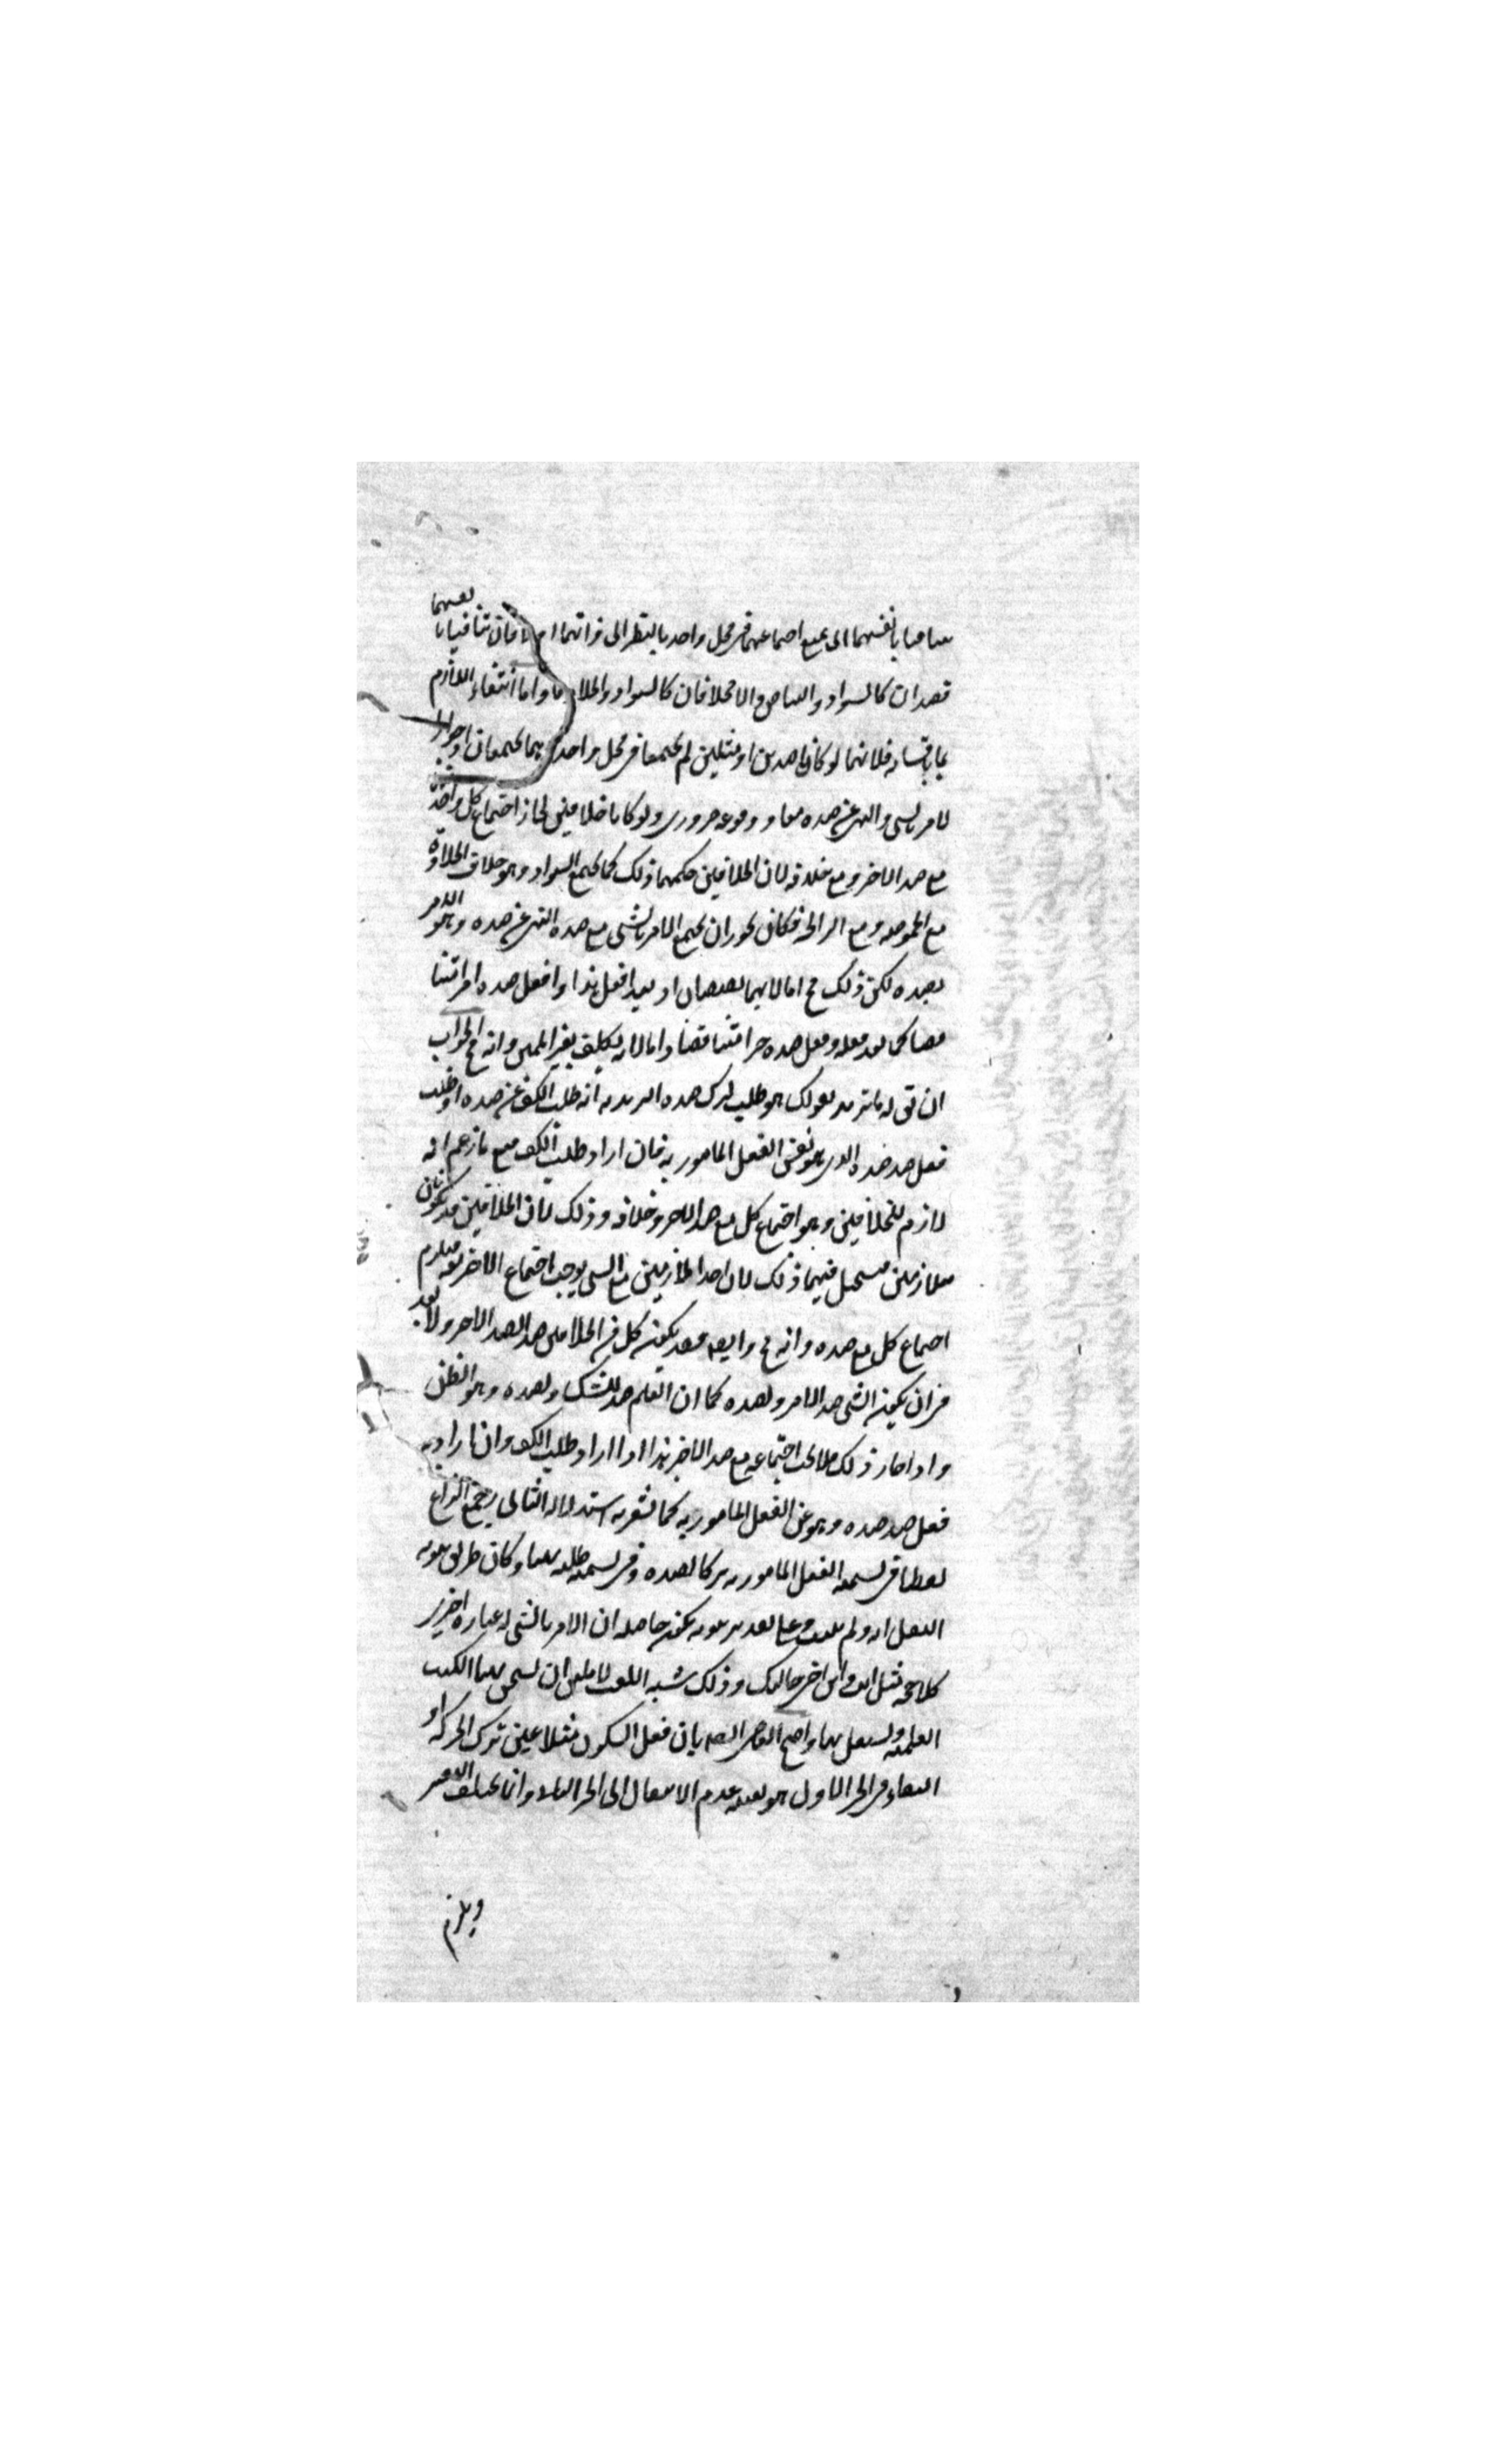 يتنافيا بانفسهما اى يمتنع اجتماعهما فى محل واحد بالنظر الى ذاتهما اولا فان تنافيا بانفسهما
فضدان كالسواد والبياض والا فخلافان كالسواد والحلاوة واما انتفاء اللازم
باقسامه فلانهما لو كانا ضدين او مثلين لم يجتمعا فى محل واحد وهما يجتمعان اذ جواز
الامر بالشى والنهى عن ضده معا ووقوعه ضرورى ولو كانا خلافين لجاز اجتماع كل واحد
مع ضد الاخر ومع خلافه لان الخلافين حكمهما ذلك كما يجتمع السواد وهو خلاف الحلاوة
مع الحموضة ومع الرائحة فكان يجوز ان يجتمع الامر بالشى مع ضد النهى عن ضده وهو الامر
بضده لكن ذلك مح اما لانهما نقيضان اذ يعد افعل هذا وافعل ضده امرا متنا
قضا كما يعد فعله وفعل ضده خبرا متناقضا واما لانه تكليف بغير الممكن وانه مح الجواب
ان تق له ما تريد بقولك هو طلب لترك ضده اتريد به انه طلب الكف عن ضده او طلب
فعل ضد ضده الذى هو نفس الفعل المامور به فان اراد طلب الكف منع ما زعم انه
لازم للخلافين وهو اجتماع كل مع ضد الاخر وخلافه وذلك لان الخلافين قد يكونان
متلازمين فيستحيل فيهما ذلك لان اجتماع احد المتلازمين مع الشى يوجب اجتماع الاخر معه فيلزم
اجتماع كل مع ضده وانه مح وايضا فقد يكون كل من الخلافين ضد الضد الاخر ولا بعد
فى ان يكون الشى ضدا لامر ولضده كما ان العلم ضد للشك ولضده وهو الظن
واذا جاز ذلك فلا يجب اجتماعه مع ضد الاخر هذا اذا اراد طلب الكف وان اراد به
فعل ضد ضده وهو عين الفعل المامور به كما يشعر به استدلاله الثانى رجع النزاع
لفظيا فى تسمية الفعل المامور به تركا لضده وفى تسمية طلبه نهيا وكان طريق ثبوته
النقل لغة ولم يثبت وعلى تقدير ثبوته يكون حاصله ان الامر بالشى له عبارة اخرى
كالاحجية مثل انت وابن اخت خالتك وذلك شبه اللعب لا يليق ان يسمى بها الكتب
العلمية ويشتغل بها واحتج القاضى ايضا بان فعل السكون مثلا عين ترك الحركة اذ
البقاء فى الحيز الاول هو بعينه عدم الانتقال الى الحيز الثانى وانما يختلف التعبير
ويلزم